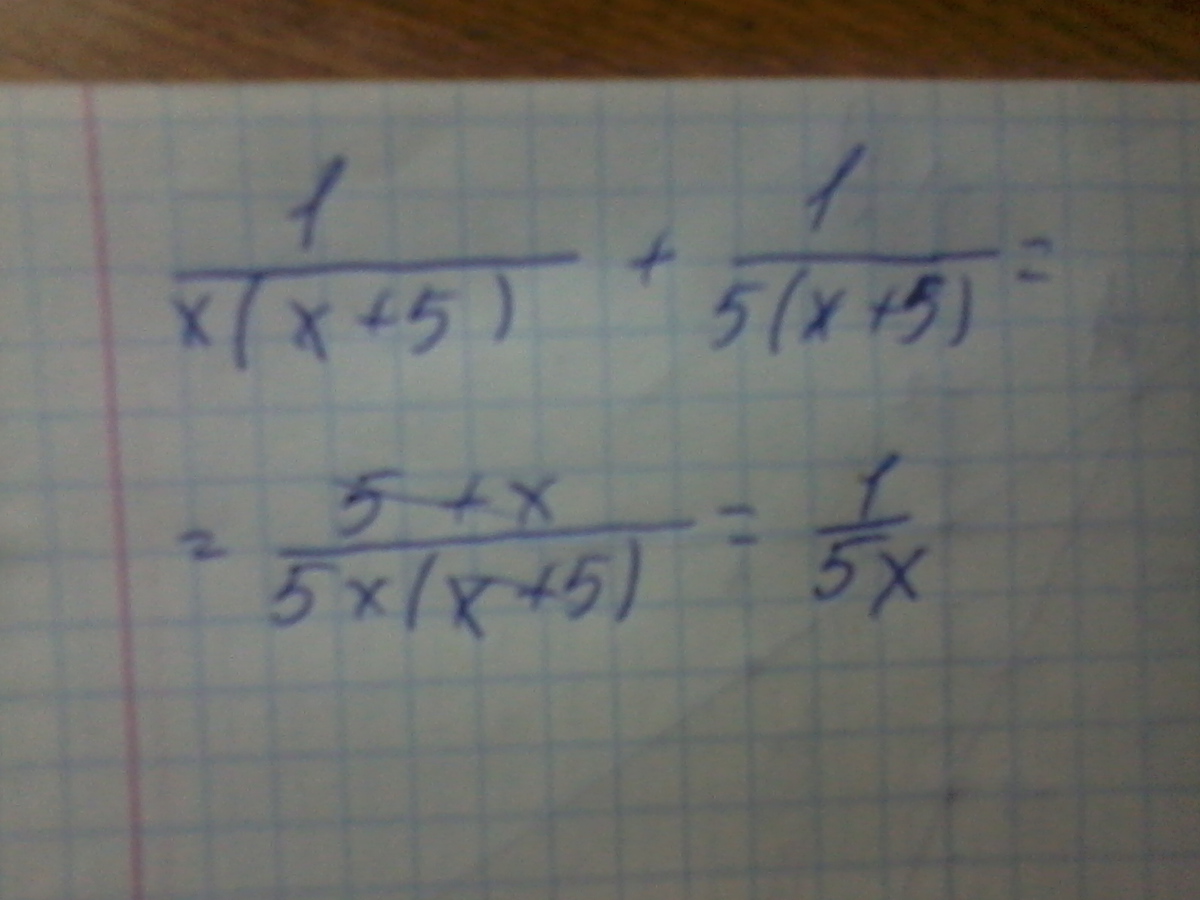 1/(x(x+5)) + 1/(5(x+5)) =
= (5+x)/(5x(x+5)) = 1/(5x)